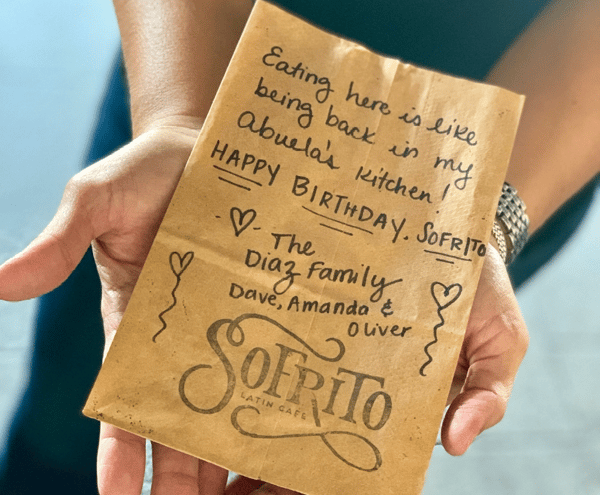 Eating here is like
being back in my
Abuela's Kitchen!
HAPPY BIRTHDAY, SOFRITO
The
Diaz Family
Dave, Amanda &
Oliver
SOFRITO
LATIN CAFE